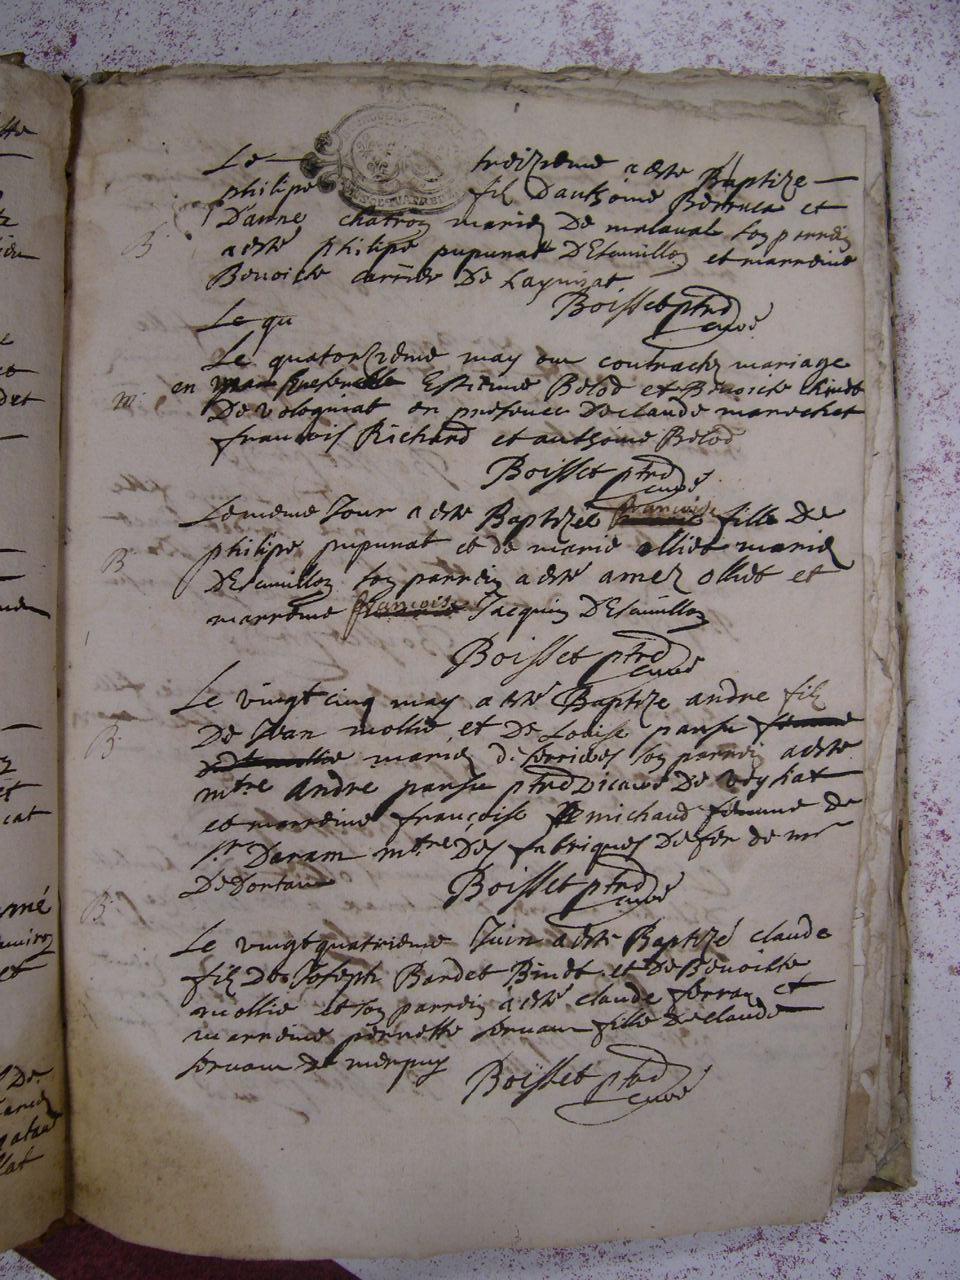 Le treizieme a esté Baptize
philipe fils D'anthoine et
D'anne chatron mariez De malaval son parrein
B. a esté philipe pupunat D'Esouillon et marreine
Benoiste carrier De Layssat
Boisset ptre curé
Le qu
Le quatorzieme may ont contracté mariage
m. en Estienne Belod et Benoiste
De vologniat en presence De claude marechet
francois Richard et anthoine Belod
Boisset ptre curé
Le meme Jour a esté Baptizee françoise fille De
B. philipe pupunat et de marie olliet mariez
D'Esouillon son parrein a esté amez olliet et
marreine françoise Jacquin D'Esouillon
Boisset ptre curé
Le vingt cinq may a esté Baptize andre fils
B. De Jean mollie et De Louise pansu femme
mariez de serrieres son parrein a esté
mtre andre pansu ptre vicaire De veyziat
et marreine françoise michaud femme de
sr Daram mtre Des fabriques De fer de mr
De Dortan Boisset ptre curé
B.
Le vingt quatrieme Juin a esté Baptizé claude
fils De Joseph Bardet Binet et De Benoiste
mollie et son parrein a esté claude et
marreine pernette servan fille De claude
servan de
Boisset ptre curé